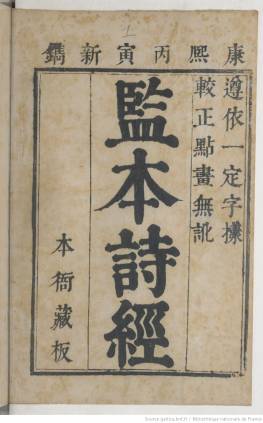 康熙丙寅新鐫
遵依一定字㨾
較正點畫無訛
監本詩經
本衙藏板
Source gallica.bnf.fr / Bibliothèque nationale de France